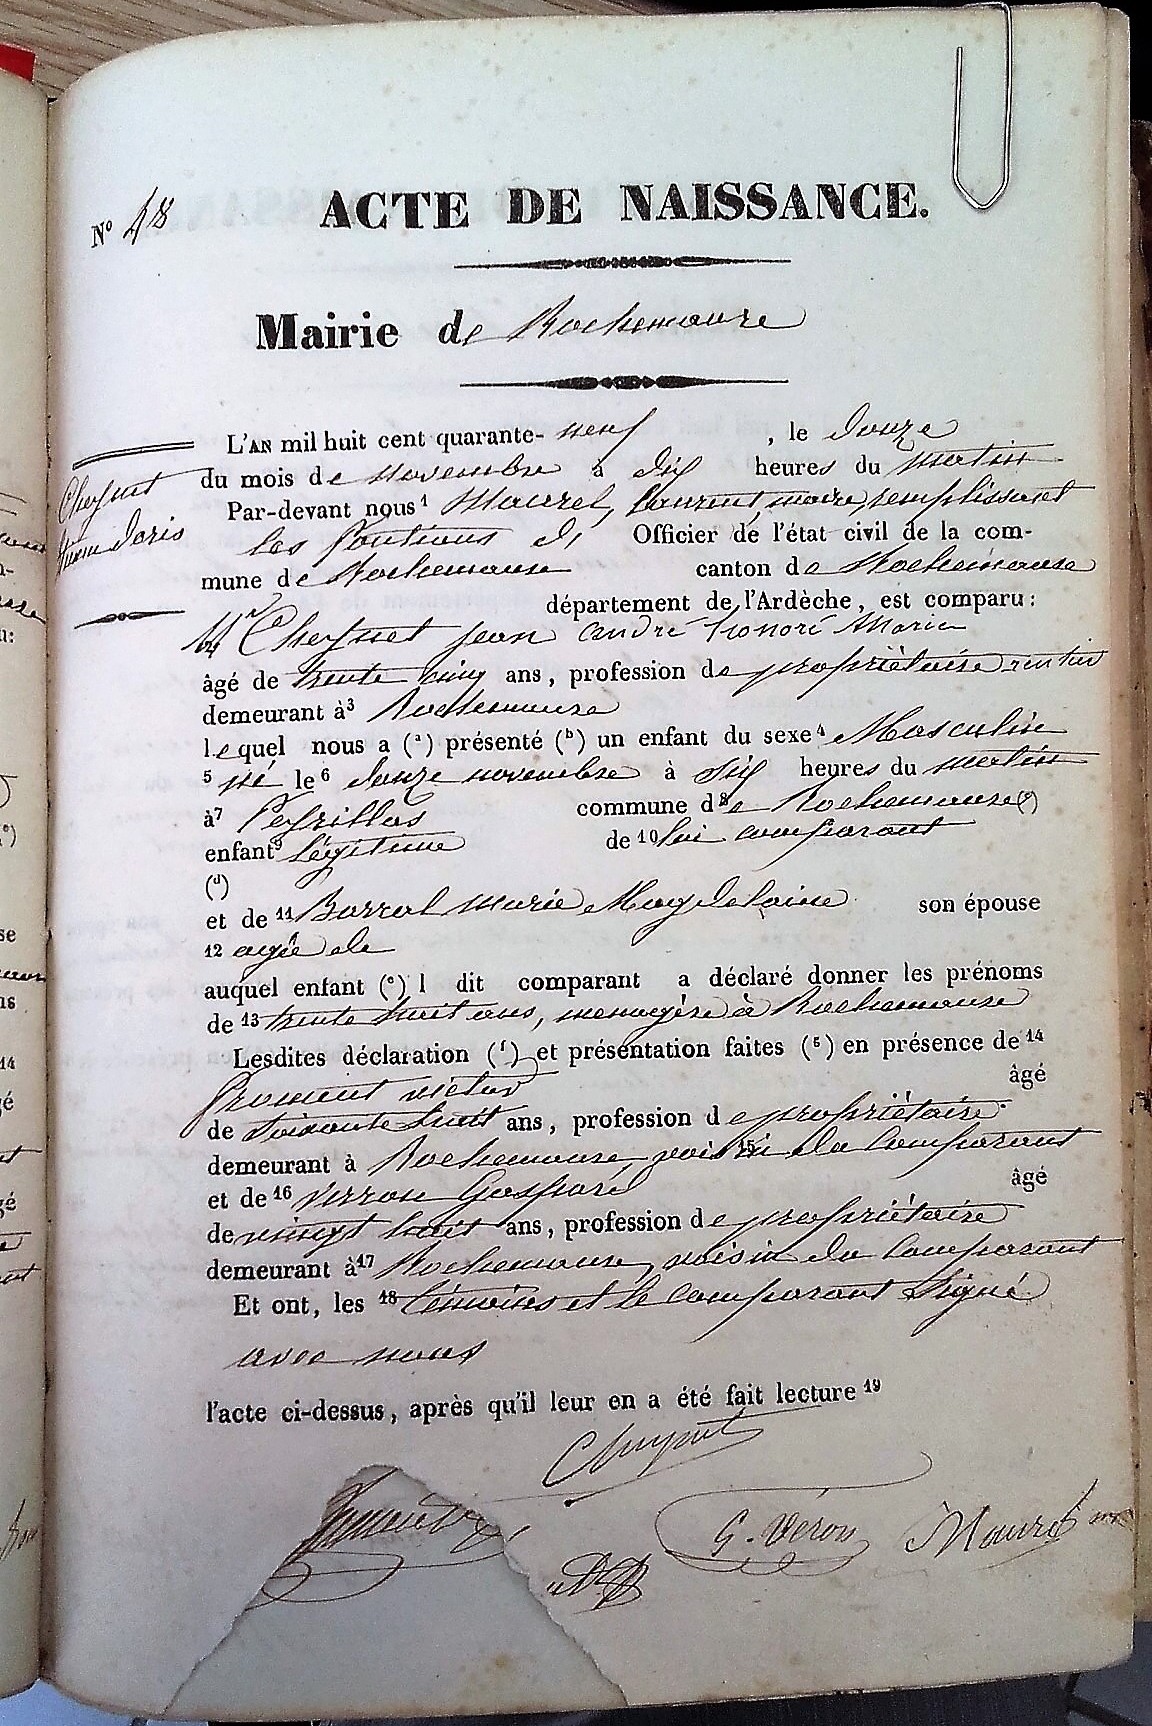 N° 48
ACTE DE NAISSANCE.
Mairie de Rochemaure
L'AN mil huit cent quarante- neuf , le douze
du mois de novembre à dix heures du matin
Par-devant nous 1 Maurel, Laurent, maire, remplissant
les fontions d, Officier de l'état civil de la com-
mune de Rochemaure canton de Rochemaure
département de l'Ardèche, est comparu :
Mr Cheynet jean andré honoré Marie
âgé de trente cinq ans, profession de propriètaire rentier
demeurant à 3 Rochemaure
lequel nous a (a) présenté (b) un enfant du sexe 4 Masculin
5 né le 6 douze novembre à dix heures du matin
à 7 Peyrillas commune d 8 e Rochemaure (c)
enfant 9 légitime de 10 lui comparant
(d)
et de 11 Barral marie Magdelaine son épouse
12 agée de
auquel enfant (e) l dit comparant a déclaré donner les prénoms
de 13 trente huit ans, menagère à Rochemaure
Lesdites déclaration (f) et présentation faites (g) en présence de 14
froment victor âgé
de soixante huit ans, profession de propriètaire
demeurant à Rochemaure, voisin 15 du Comparant
et de 16 Verron Gaspard âgé
de vingt huit ans, profession de propriètaire
demeurant à 17 Rochemaure, voisin du Comparant
Et ont, les 18 témoins et le comparant Signé
avec nous
l'acte ci-dessus, après qu'il leur en a été fait lecture 19
Cheynet
G. Véron Maurel
Cheynet